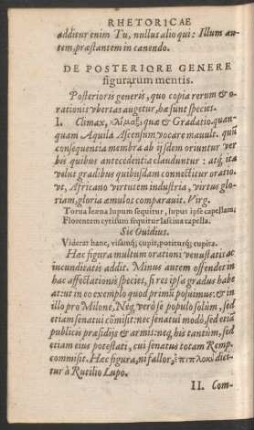 RHETORICAE
additur enim Tu, nullus alio qui: Illum au-
tem, præstantem in canendo.
DE POSTERIORE GENERE
figurarum mentis.
Posterioris generis, quo copia rerum & o-
rationis ubertas augetur, hæ sunt species.
I. Climax, κλίμαξ, quæ & Gradatio, quan-
quam Aquila Ascensum vocare mavult. quū
consequentia membra ab iisdem oriuntur ver
bis quibus antecedentia clauduntur: atq́, ita
velut gradibus quibusdam connectitur oratio.
ut, Africano virtutem industria, virtus glo-
riam, gloria æmulos comparavit. Virg.
Torua leæna lupum sequitur, lupus ipse capellam;
Florentem cytisum sequitur lasciua capella.
Sic Ouidius.
Viderat hanc, visamq́; cupit, potiturq́; cupita.
Hæc figura multum orationi venustatis ac
iucunditatis addit. Minus autem offender in
hac affectationis species, si res ipsa gradus habe
at: ut in eo exemplo quod primū posuimus: & in
illo pro Milone, Neq́ verò se populo solùm, sed
etiam senatui cōmisit: nec senatui modò, sed etiā
publicis præsidiis & armis: neq́ his tantùm, sed
etiam eius potestati, cui senatus totam Remp.
commisit. Hæc figura, ni fallor, ἐπιπλοκὴ dici-
tur à Rutilio Lupo.
II. Com-